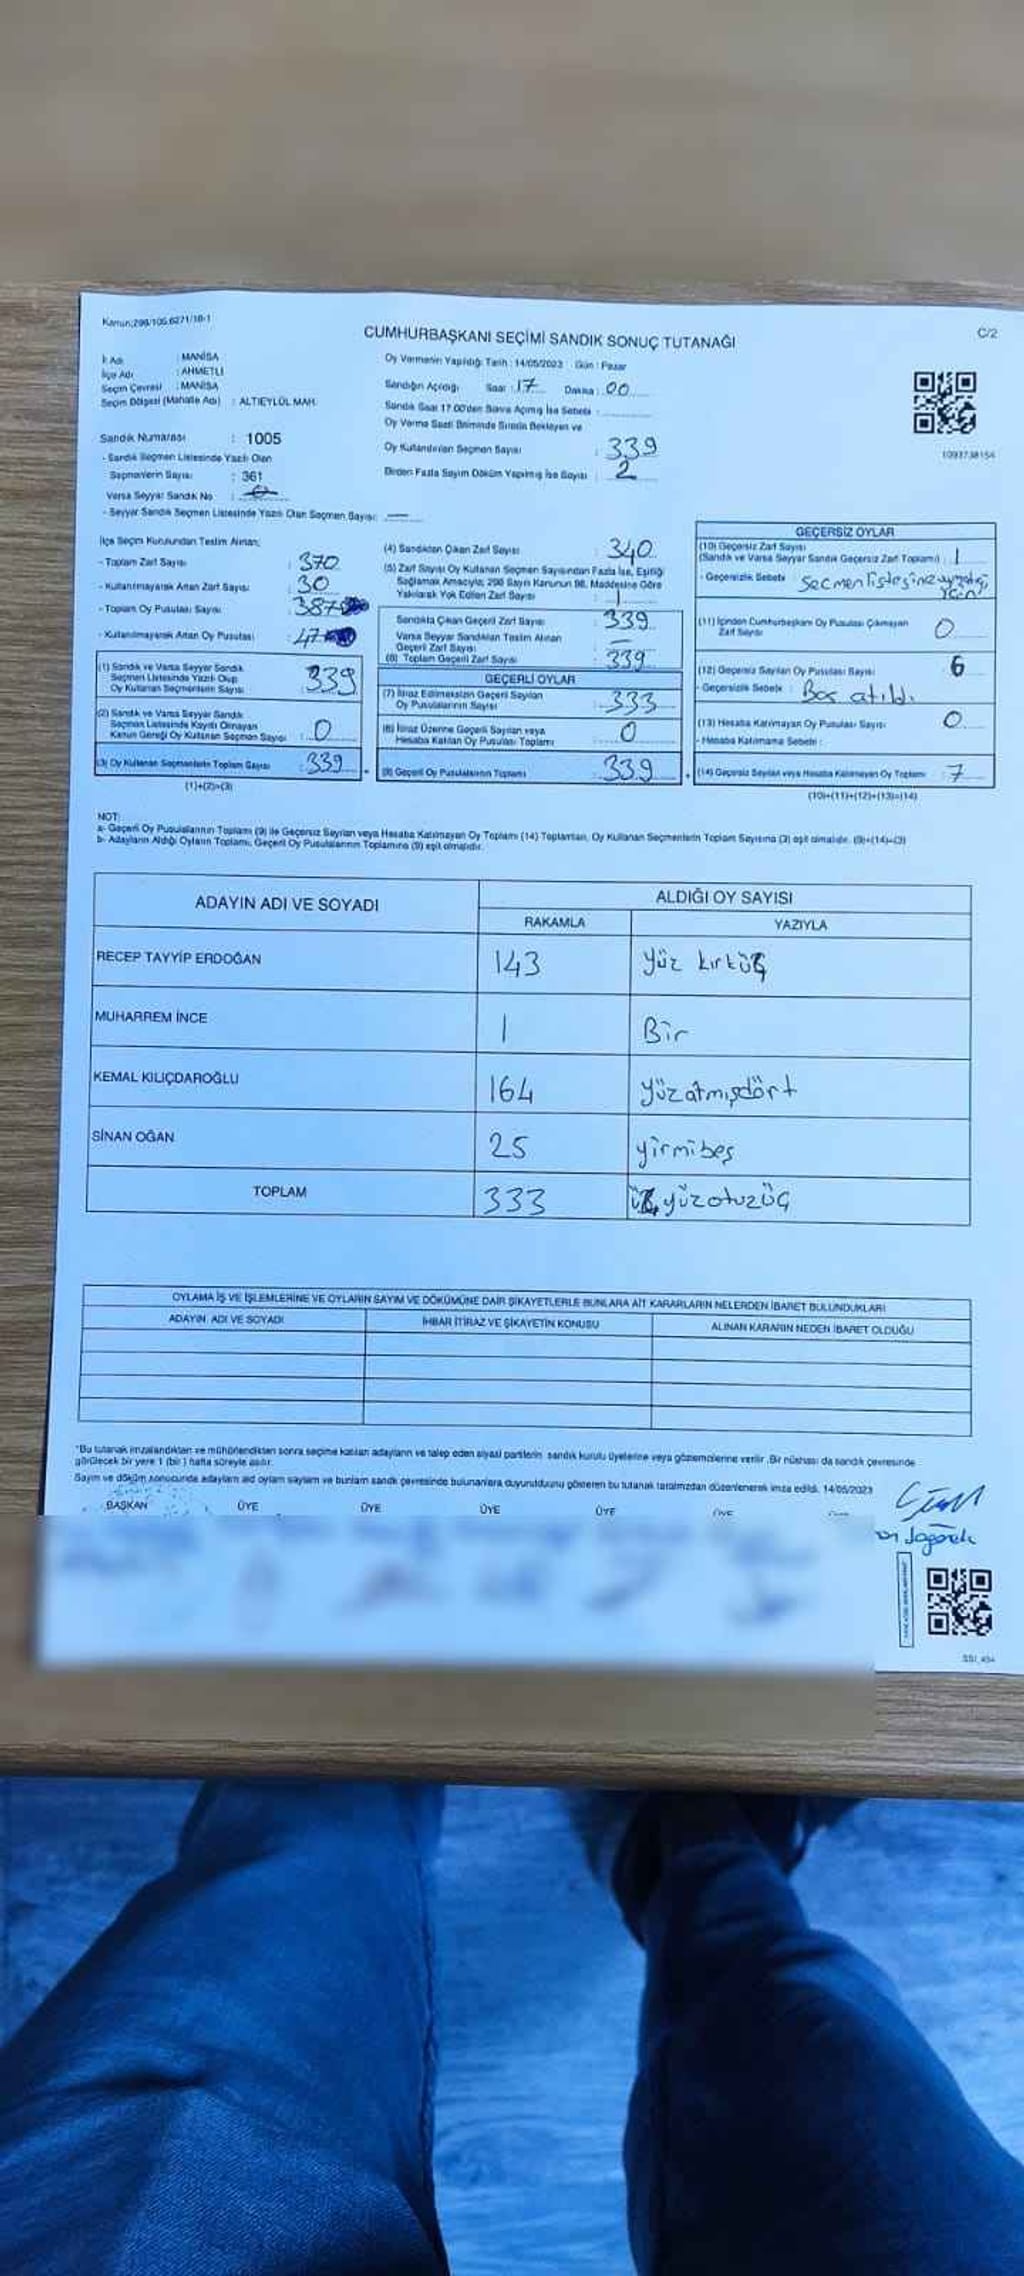 Kanun:298/105,6271/18-1
C/2
CUMHURBAŞKANI SEÇİMİ SANDIK SONUÇ TUTANAĞI
İl Adı : MANİSA
İlçe Adı : AHMETLİ
Seçim Çevresi : MANİSA
Seçim Bölgesi (Mahalle Adı) : ALTIEYLÜL MAH.
Sandık Numarası : 1005
- Sandık Seçmen Listesinde Yazılı Olan
Seçmenlerin Sayısı : 361
Varsa Seyyar Sandık No : 0
- Seyyar Sandık Seçmen Listesinde Yazılı Olan Seçmen Sayısı: —
Oy Vermenin Yapıldığı Tarih : 14/05/2023 Gün : Pazar
Sandığın Açıldığı Saat : 17 Dakika : 00
Sandık Saat 17.00'den Sonra Açılmış İse Sebebi :
Oy Verme Saati Bitiminde Sırada Bekleyen ve
Oy Kullandırılan Seçmen Sayısı : 339
Birden Fazla Sayım Döküm Yapılmış İse Sayısı : 2
1093738154
İlçe Seçim Kurulundan Teslim Alınan;
- Toplam Zarf Sayısı : 370
- Kullanılmayarak Artan Zarf Sayısı : 30
- Toplam Oy Pusulası Sayısı : 387
- Kullanılmayarak Artan Oy Pusulası : 47
(1) Sandık ve Varsa Seyyar Sandık
Seçmen Listesinde Yazılı Olup
Oy Kullanan Seçmenlerin Sayısı : 339
(2) Sandık ve Varsa Seyyar Sandık
Seçmen Listesinde Kaydı Olmayan
Kanun Gereği Oy Kullanan Seçmen Sayısı : 0
(3) Oy Kullanan Seçmenlerin Toplam Sayısı : 339
(1)+(2)=(3)
(4) Sandıktan Çıkan Zarf Sayısı : 340
(5) Zarf Sayısı Oy Kullanan Seçmen Sayısından Fazla İse, Eşitliği
Sağlamak Amacıyla; 298 Sayılı Kanunun 98. Maddesine Göre
Yakılarak Yok Edilen Zarf Sayısı : 1
Sandıkta Çıkan Geçerli Zarf Sayısı : 339
Varsa Seyyar Sandıktan Teslim Alınan
Geçerli Zarf Sayısı : —
(6) Toplam Geçerli Zarf Sayısı : 339
GEÇERLİ OYLAR
(7) İtiraz Edilmeksizin Geçerli Sayılan
Oy Pusulalarının Sayısı : 333
(8) İtiraz Üzerine Geçerli Sayılan veya
Hesaba Katılan Oy Pusulası Toplamı : 0
(9) Geçerli Oy Pusulalarının Toplamı : 339
GEÇERSİZ OYLAR
(10) Geçersiz Zarf Sayısı
(Sandık ve Varsa Seyyar Sandık Geçersiz Zarf Toplamı) : 1
- Geçersizlik Sebebi : Seçmen listesine uymadığı
için
(11) İçinden Cumhurbaşkanı Oy Pusulası Çıkmayan
Zarf Sayısı : 0
(12) Geçersiz Sayılan Oy Pusulası Sayısı : 6
- Geçersizlik Sebebi : Boş atıldı
(13) Hesaba Katılmayan Oy Pusulası Sayısı : 0
- Hesaba Katılmama Sebebi :
(14) Geçersiz Sayılan veya Hesaba Katılmayan Oy Toplamı : 7
(10)+(11)+(12)+(13)=(14)
NOT:
a- Geçerli Oy Pusulalarının Toplamı (9) ile Geçersiz Sayılan veya Hesaba Katılmayan Oy Toplamı (14) Toplamları, Oy Kullanan Seçmenlerin Toplam Sayısına (3) eşit olmalıdır. (9)+(14)=(3)
b- Adayların Aldığı Oyların Toplamı, Geçerli Oy Pusulalarının Toplamına (9) eşit olmalıdır.
ADAYIN ADI VE SOYADI
ALDIĞI OY SAYISI
RAKAMLA YAZIYLA
RECEP TAYYİP ERDOĞAN 143 Yüz kırküç
MUHARREM İNCE 1 Bir
KEMAL KILIÇDAROĞLU 164 Yüzatmışdört
SİNAN OĞAN 25 yirmibeş
TOPLAM 333 üç yüzotuzüç
OYLAMA İŞ VE İŞLEMLERİNE VE OYLARIN SAYIM VE DÖKÜMÜNE DAİR ŞİKAYETLERLE BUNLARA AİT KARARLARIN NELERDEN İBARET BULUNDUKLARI
ADAYIN ADI VE SOYADI İHBAR İTİRAZ VE ŞİKAYETİN KONUSU ALINAN KARARIN NEDEN İBARET OLDUĞU
*Bu tutanak imzalandıktan ve mühürlendikten sonra seçime katılan adayların ve talep eden siyasi partilerin sandık kurulu üyelerine veya gözlemcilerine verilir. Bir nüshası da sandık çevresinde
görülecek bir yere 1 (bir) hafta süreyle asılır.
Sayım ve döküm sonucunda adayların ad oyların sayıların ve bunların sandık çevresinde bulunanlara duyurulduğunu gösteren bu tutanak tarafımızdan düzenlenerek imza edildi. 14/05/2023
BAŞKAN ÜYE ÜYE ÜYE ÜYE ÜYE